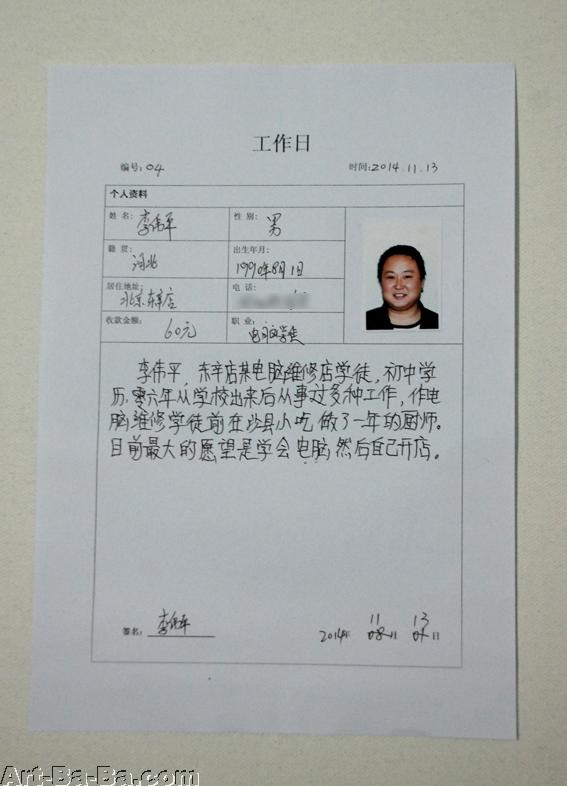 工作日
编号: 04 时间: 2014.11.13
个人资料
姓名: 李伟平 性别: 男
籍贯: 河北 出生年月: 1990年8月1日
居住地址: 北京东辛店 电话:
收款金额: 60元 职业: 电脑学徒
李伟平,东辛店某电脑维修店学徒,初中学
历,零六年从学校出来后从事过多种工作,作电
脑维修学徒前在沙县小吃做了一年的厨师。
目前最大的愿望是学会电脑然后自己开店。
11 13
签名: 李伟平 2014年 08月 04日
Art-Ba-Ba.com